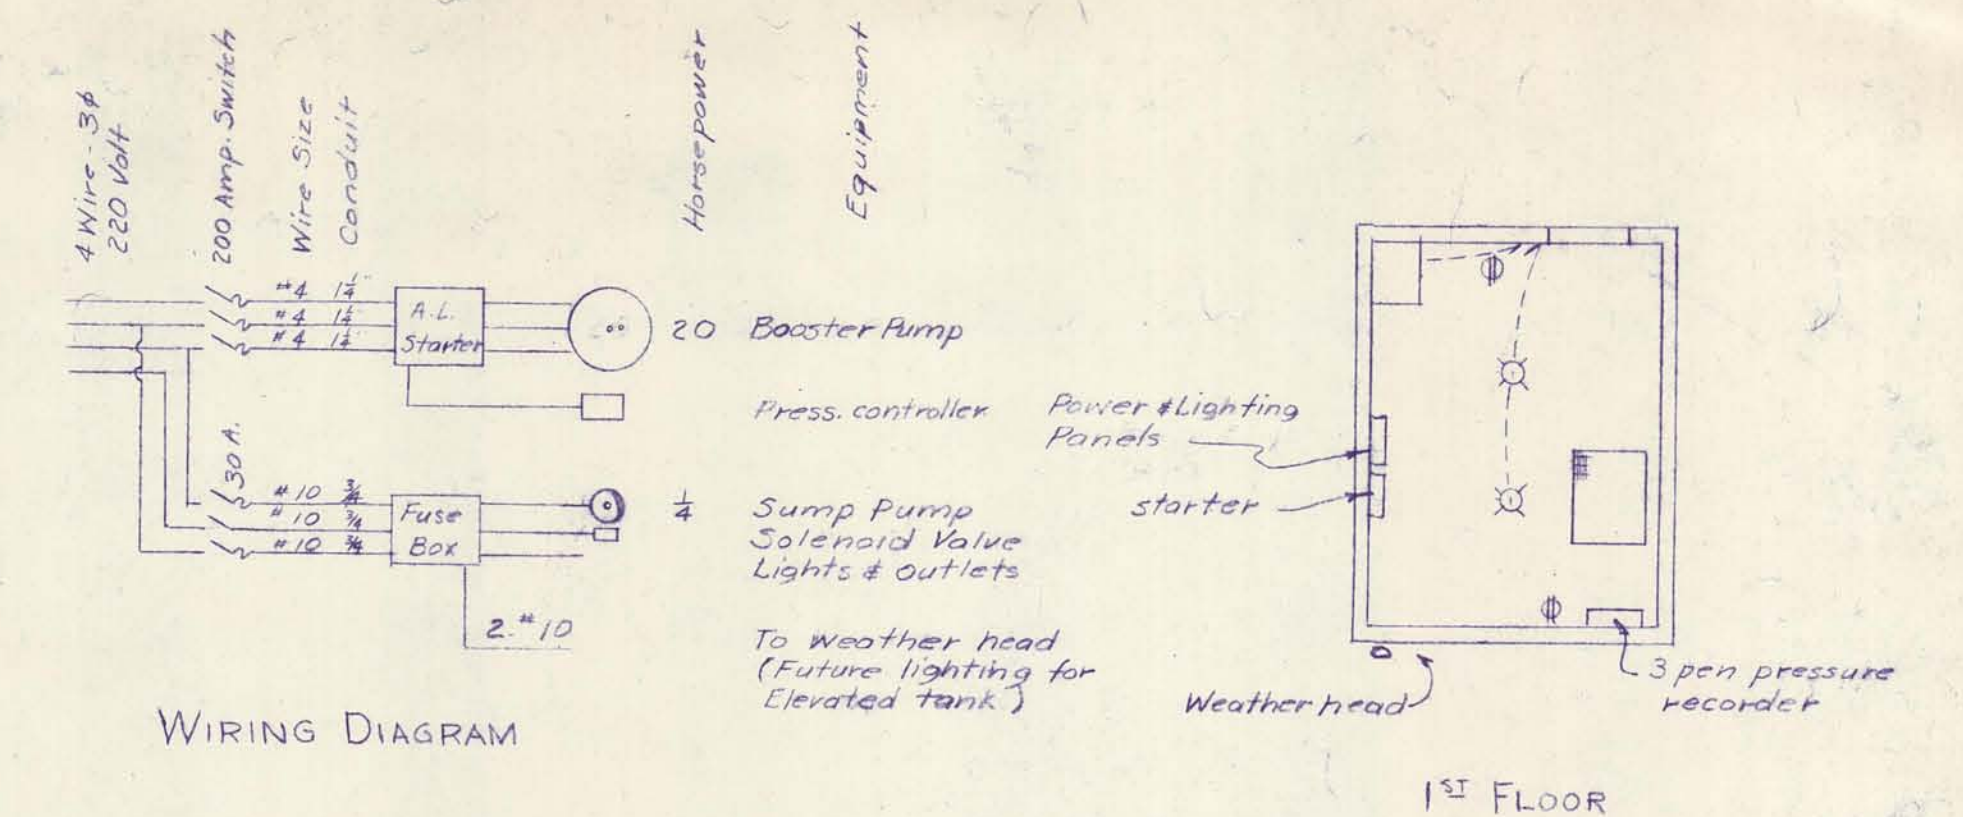 4 Wire - 3φ
220 Volt
200 Amp. Switch
Wire Size
Conduit
Horsepower
Equipment
#4 1¼"
#4 1¼"
#4 1¼"
A.L.
Starter
20 Booster Pump
Press. controller
30 A.
#10 ¾
#10 ¾
#10 ¾
Fuse
Box
¼ Sump Pump
Solenoid Valve
Lights & outlets
2-#10
To weather head
(Future lighting for
Elevated tank)
WIRING DIAGRAM
Power & Lighting
Panels
starter
Weather head
3 pen pressure
recorder
1ST FLOOR